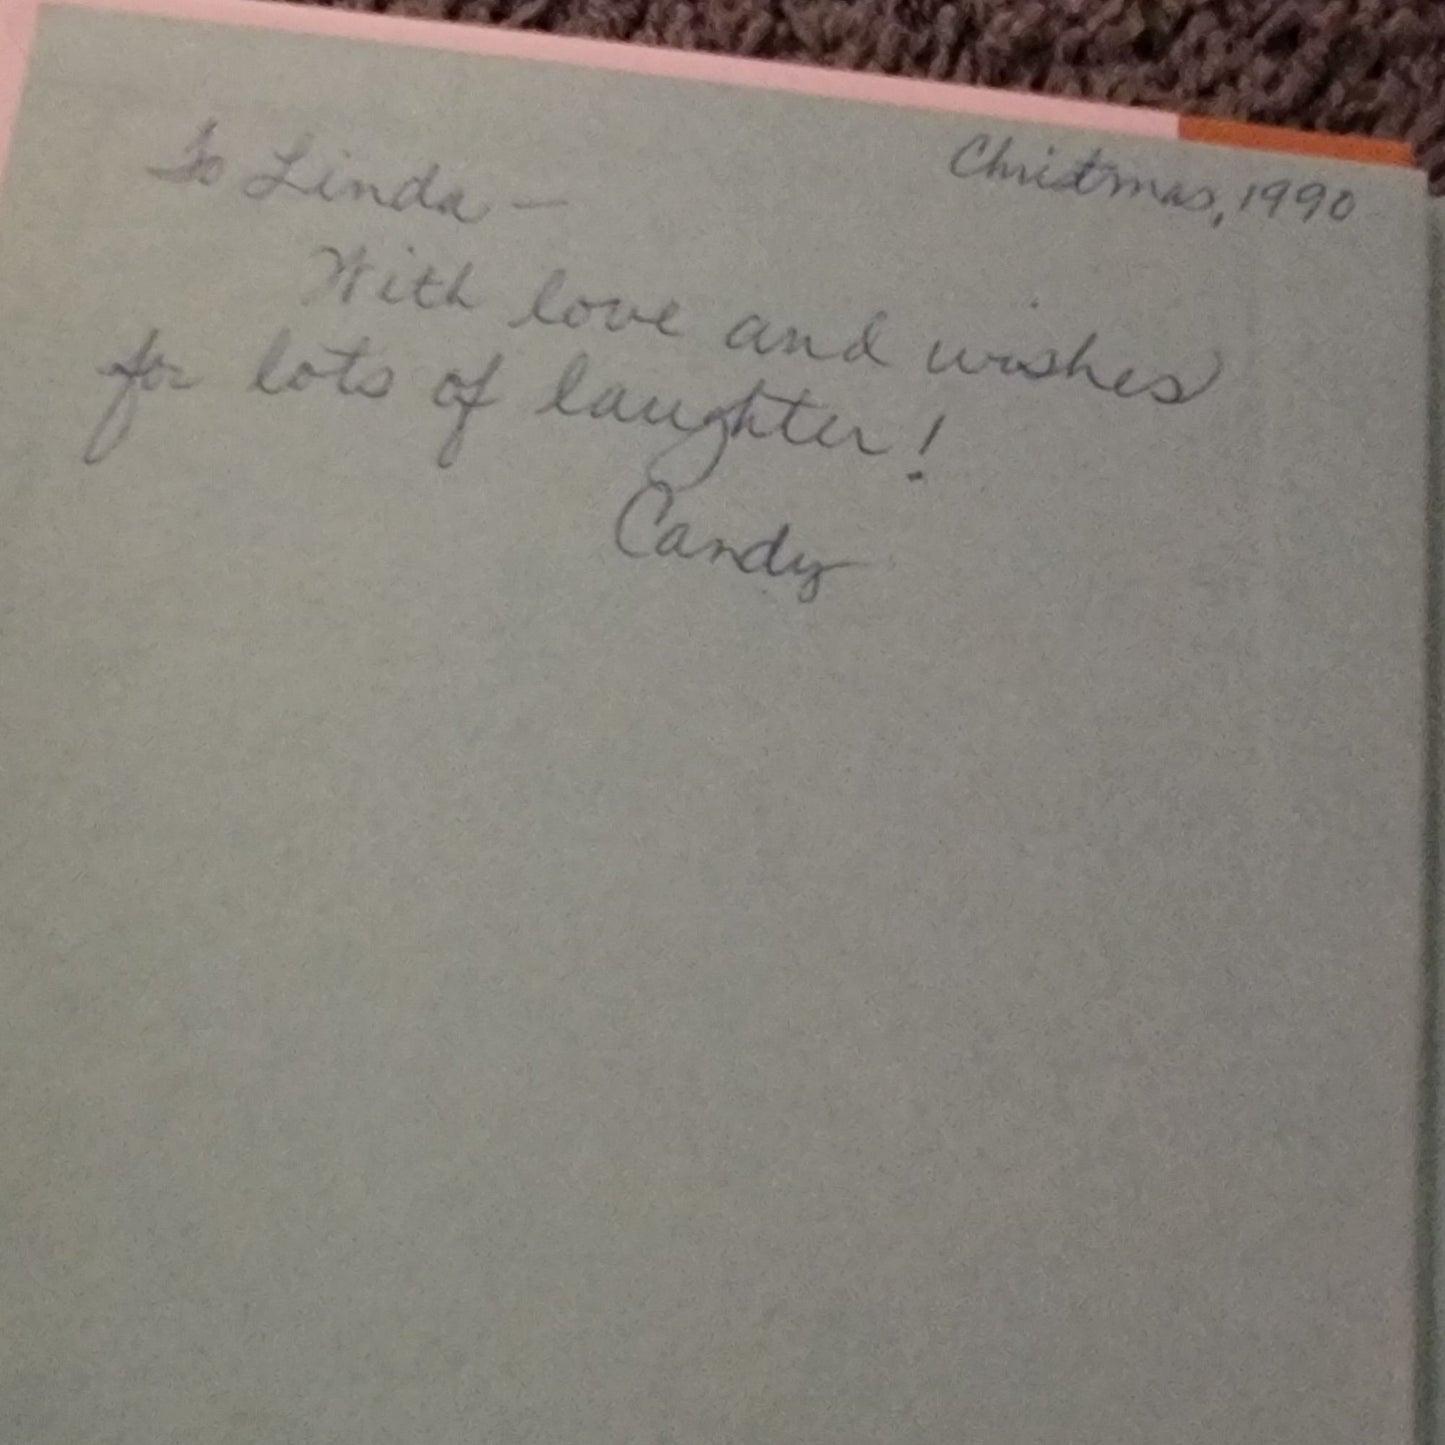 Christmas, 1990
To Linda —
With love and wishes
for lots of laughter!
Candy